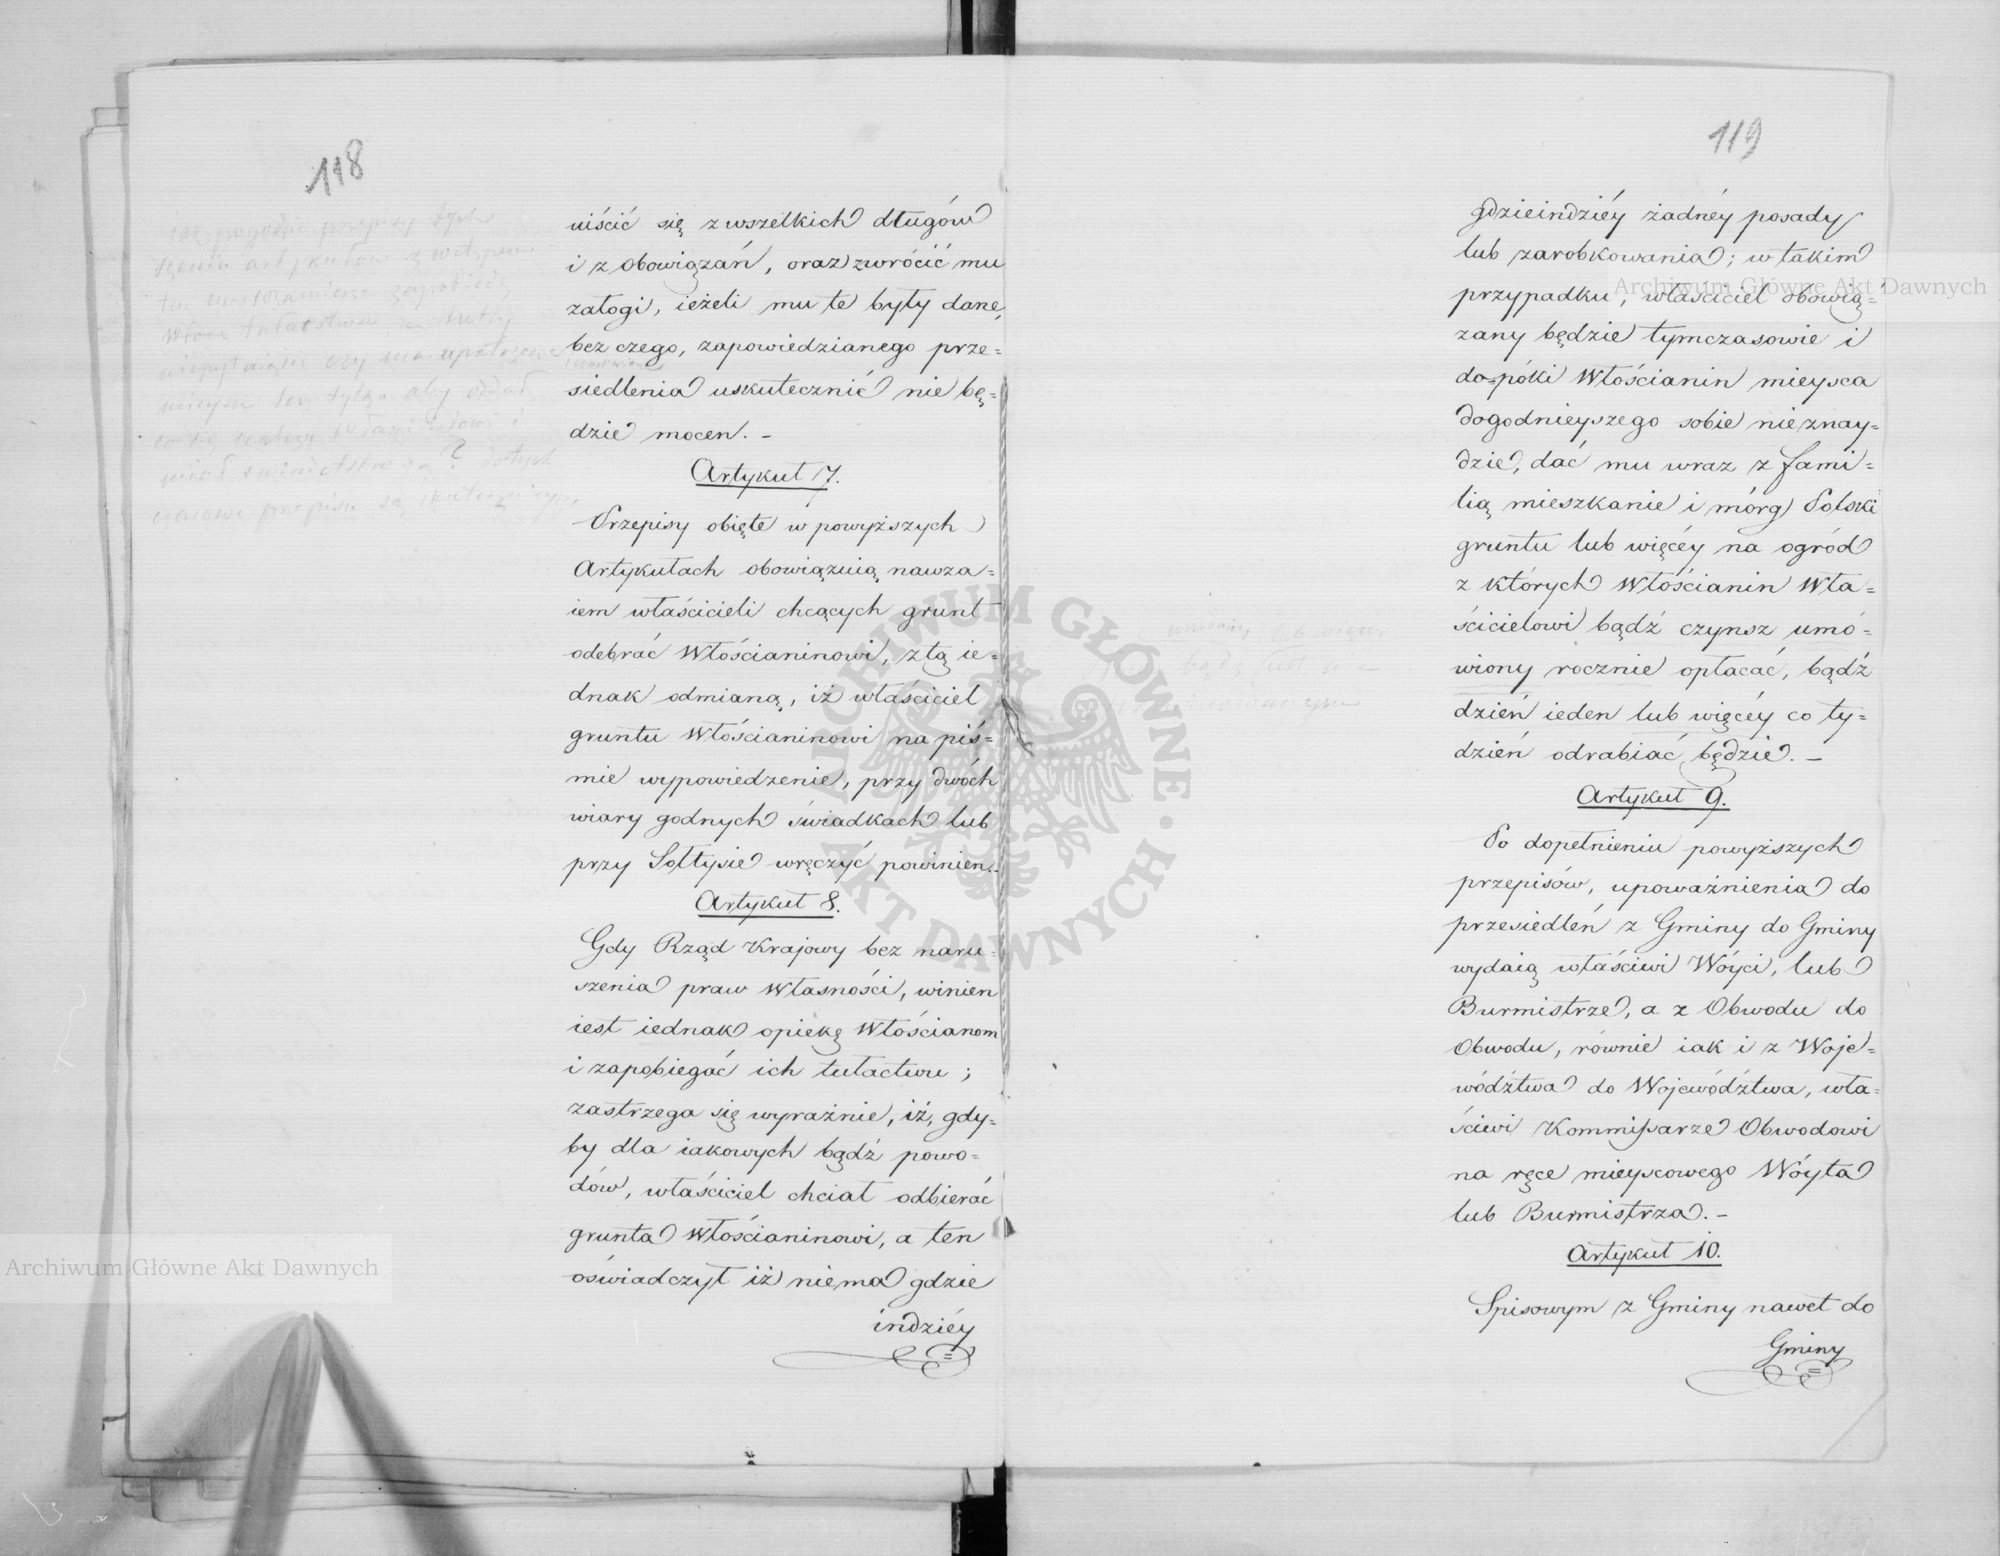 118
uiścić się z wszelkich długów
i z obowiązań, oraz zwrócić mu
załogi, ieżeli mu te były dane,
bez czego, zapowiedzianego prze=
siedlenia uskutecznić nie bę=
dzie mocen. -
Artykuł 7.
Przepisy obięte w powyższych
Artykułach obowiązuią nawza=
iem właścicieli chcących grunt
odebrać Włościaninowi, z tą ie=
dnak odmianą, iż właściciel
gruntu Włościaninowi na piś=
mie wypowiedzenie, przy dwóch
wiary godnych świadkach lub
przy Sołtysie wręczyć powinien.-
Artykuł 8.
Gdy Rząd Krajowy bez naru=
szenia praw Własności, winien
iest iednak opiekę Włościanom
i zapobiegać ich tułactwu;
zastrzega się wyraźnie, iż, gdy=
by dla iakowych bądź powo=
dów, właściciel chciał odbierać
grunta Włościaninowi, a ten
oświadczył iż niema gdzie
indziéy
119
gdzieindziéy żadnéy posady
lub zarobkowania; w takim
przypadku, właściciel obowią=
zany będzie tymczasowie i
do=póki Włościanin mieysca
dogodnieyszego sobie nieznay=
dzie, dać mu wraz z fami=
lią mieszkanie i mórg Polski
gruntu lub więcéy na ogród
z których Włościanin Wła=
ścicielowi bądź czynsz umó=
wiony rocznie opłacać, bądź
dzień ieden lub więcéy co ty=
dzień odrabiać będzie. -
Artykuł 9.
Po dopełnieniu powyższych
przepisów, upoważnienia do
przesiedleń z Gminy do Gminy
wydaią właściwi Wóyci, lub
Burmistrze, a z Obwodu do
Obwodu, równie iak i z Woje=
wództwa do Województwa, wła=
ściwi Kommissarze Obwodowi
na ręce mieyscowego Wóyta
lub Burmistrza. -
Artykuł 10.
Spisowym z Gminy nawet do
Gminy
Archiwum Główne Akt Dawnych
Archiwum Główne Akt Dawnych
ARCHIWUM GŁÓWNE AKT DAWNYCH